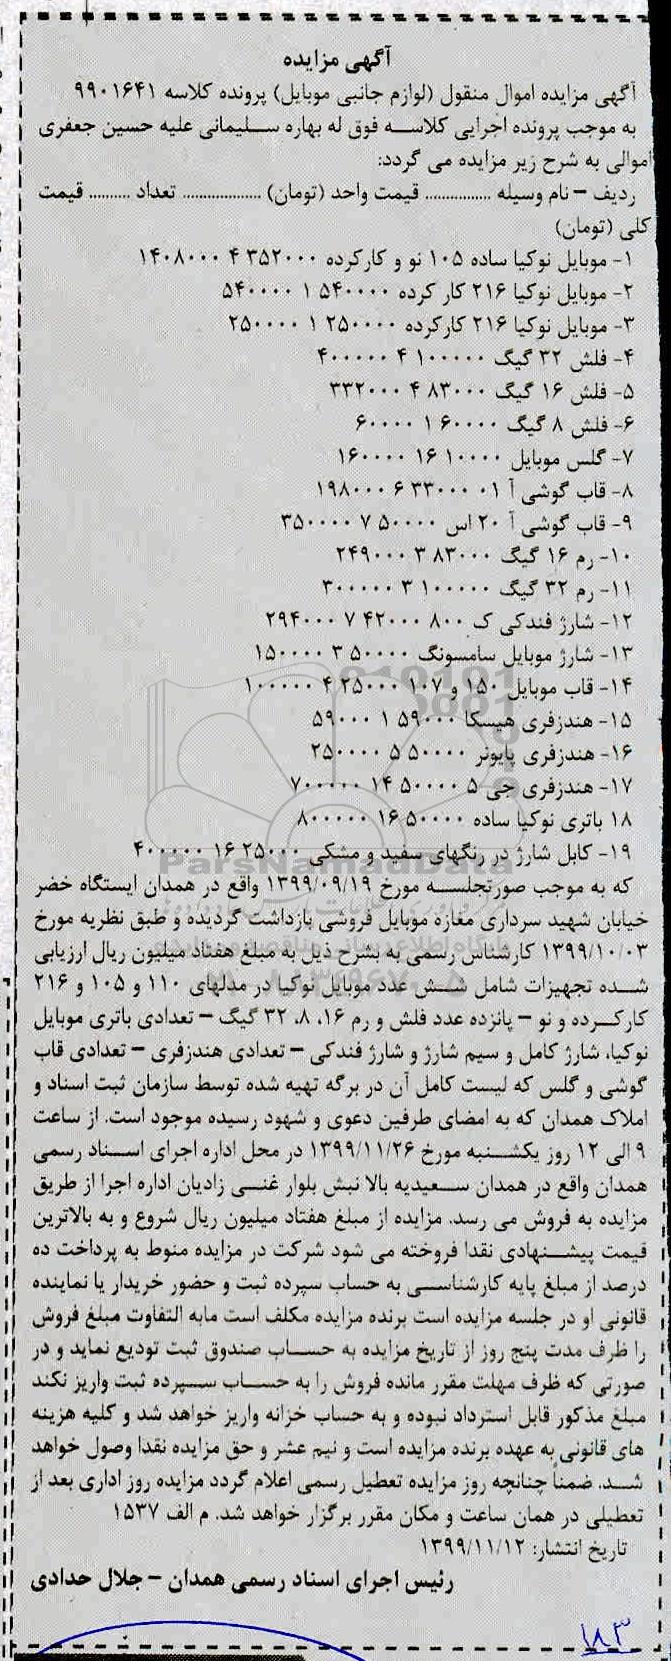 آگهی مزایده
آگهی مزایده اموال منقول (لوازم جانبی موبایل) پرونده کلاسه ۹۹۰۱۶۴۱
به موجب پرونده اجرایی کلاسه فوق له بهاره سلیمانی علیه حسین جعفری
اموالی به شرح زیر مزایده می گردد:
ردیف – نام وسیله ................ قیمت واحد (تومان) ................... تعداد .......... قیمت
کلی (تومان)
۱- موبایل نوکیا ساده ۱۰۵ نو و کارکرده ۳۵۲۰۰۰ ۴ ۱۴۰۸۰۰۰
۲- موبایل نوکیا ۲۱۶ کار کرده ۵۴۰۰۰۰ ۱ ۵۴۰۰۰۰
۳- موبایل نوکیا ۲۱۶ کارکرده ۲۵۰۰۰۰ ۱ ۲۵۰۰۰۰
۴- فلش ۳۲ گیگ ۱۰۰۰۰۰ ۴ ۴۰۰۰۰۰
۵- فلش ۱۶ گیگ ۸۳۰۰۰ ۴ ۳۳۲۰۰۰
۶- فلش ۸ گیگ ۶۰۰۰۰ ۱ ۶۰۰۰۰
۷- گلس موبایل ۱۰۰۰۰ ۱۶ ۱۶۰۰۰۰
۸- قاب گوشی آ ۰۱ ۳۳۰۰۰ ۶ ۱۹۸۰۰۰
۹- قاب گوشی آ ۲۰ اس ۵۰۰۰۰ ۷ ۳۵۰۰۰۰
۱۰- رم ۱۶ گیگ ۸۳۰۰۰ ۳ ۲۴۹۰۰۰
۱۱- رم ۳۲ گیگ ۱۰۰۰۰۰ ۳ ۳۰۰۰۰۰
۱۲- شارژ فندکی ک ۸۰۰ ۴۲۰۰۰ ۷ ۲۹۴۰۰۰
۱۳- شارژ موبایل سامسونگ ۵۰۰۰۰ ۳ ۱۵۰۰۰۰
۱۴- قاب موبایل ۱۵۰ و ۱۰۷ ۲۵۰۰۰ ۴ ۱۰۰۰۰۰
۱۵- هندزفری هیسکا ۵۹۰۰۰ ۱ ۵۹۰۰۰
۱۶- هندزفری پایونر ۵۰۰۰۰ ۵ ۲۵۰۰۰۰
۱۷- هندزفری جی ۵ ۵۰۰۰۰ ۱۴ ۷۰۰۰۰۰
۱۸ باتری نوکیا ساده ۵۰۰۰۰ ۱۶ ۸۰۰۰۰۰
۱۹- کابل شارژ در رنگهای سفید و مشکی ۲۵۰۰۰ ۱۶ ۴۰۰۰۰۰
که به موجب صورتجلسه مورخ ۱۳۹۹/۰۹/۱۹ واقع در همدان ایستگاه خضر
خیابان شهید سرداری مغازه موبایل فروشی بازداشت گردیده و طبق نظریه مورخ
۱۳۹۹/۱۰/۰۳ کارشناس رسمی به بشرح ذیل به مبلغ هفتاد میلیون ریال ارزیابی
شده تجهیزات شامل شش عدد موبایل نوکیا در مدلهای ۱۱۰ و ۱۰۵ و ۲۱۶
کارکرده و نو – پانزده عدد فلش و رم ۱۶، ۸، ۳۲ گیگ – تعدادی باتری موبایل
نوکیا، شارژ کامل و سیم شارژ و شارژ فندکی – تعدادی هندزفری – تعدادی قاب
گوشی و گلس که لیست کامل آن در برگه تهیه شده توسط سازمان ثبت اسناد و
املاک همدان که به امضای طرفین دعوی و شهود رسیده موجود است. از ساعت
۹ الی ۱۲ روز یکشنبه مورخ ۱۳۹۹/۱۱/۲۶ در محل اداره اجرای اسناد رسمی
همدان واقع در همدان سعیدیه بالا نبش بلوار غنی زادیان اداره اجرا از طریق
مزایده به فروش می رسد. مزایده از مبلغ هفتاد میلیون ریال شروع و به بالاترین
قیمت پیشنهادی نقدا فروخته می شود شرکت در مزایده منوط به پرداخت ده
درصد از مبلغ پایه کارشناسی به حساب سپرده ثبت و حضور خریدار یا نماینده
قانونی او در جلسه مزایده است برنده مزایده مکلف است مابه التفاوت مبلغ فروش
را ظرف مدت پنج روز از تاریخ مزایده به حساب صندوق ثبت تودیع نماید و در
صورتی که ظرف مهلت مقرر مانده فروش را به حساب سپرده ثبت واریز نکند
مبلغ مذکور قابل استرداد نبوده و به حساب خزانه واریز خواهد شد و کلیه هزینه
های قانونی به عهده برنده مزایده است و نیم عشر و حق مزایده نقدا وصول خواهد
شد. ضمناً چنانچه روز مزایده تعطیل رسمی اعلام گردد مزایده روز اداری بعد از
تعطیلی در همان ساعت و مکان مقرر برگزار خواهد شد. م الف ۱۵۳۷
تاریخ انتشار: ۱۳۹۹/۱۱/۱۲
رئیس اجرای اسناد رسمی همدان – جلال حدادی
۱۸۳
ParsNamadData